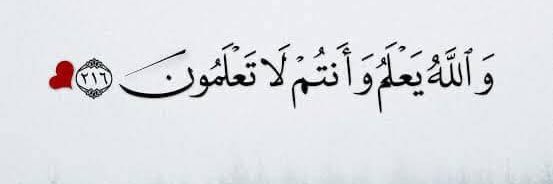 وَٱللَّهُ يَعْلَمُ وَأَنتُمْ لَا تَعْلَمُونَ ٢١٦